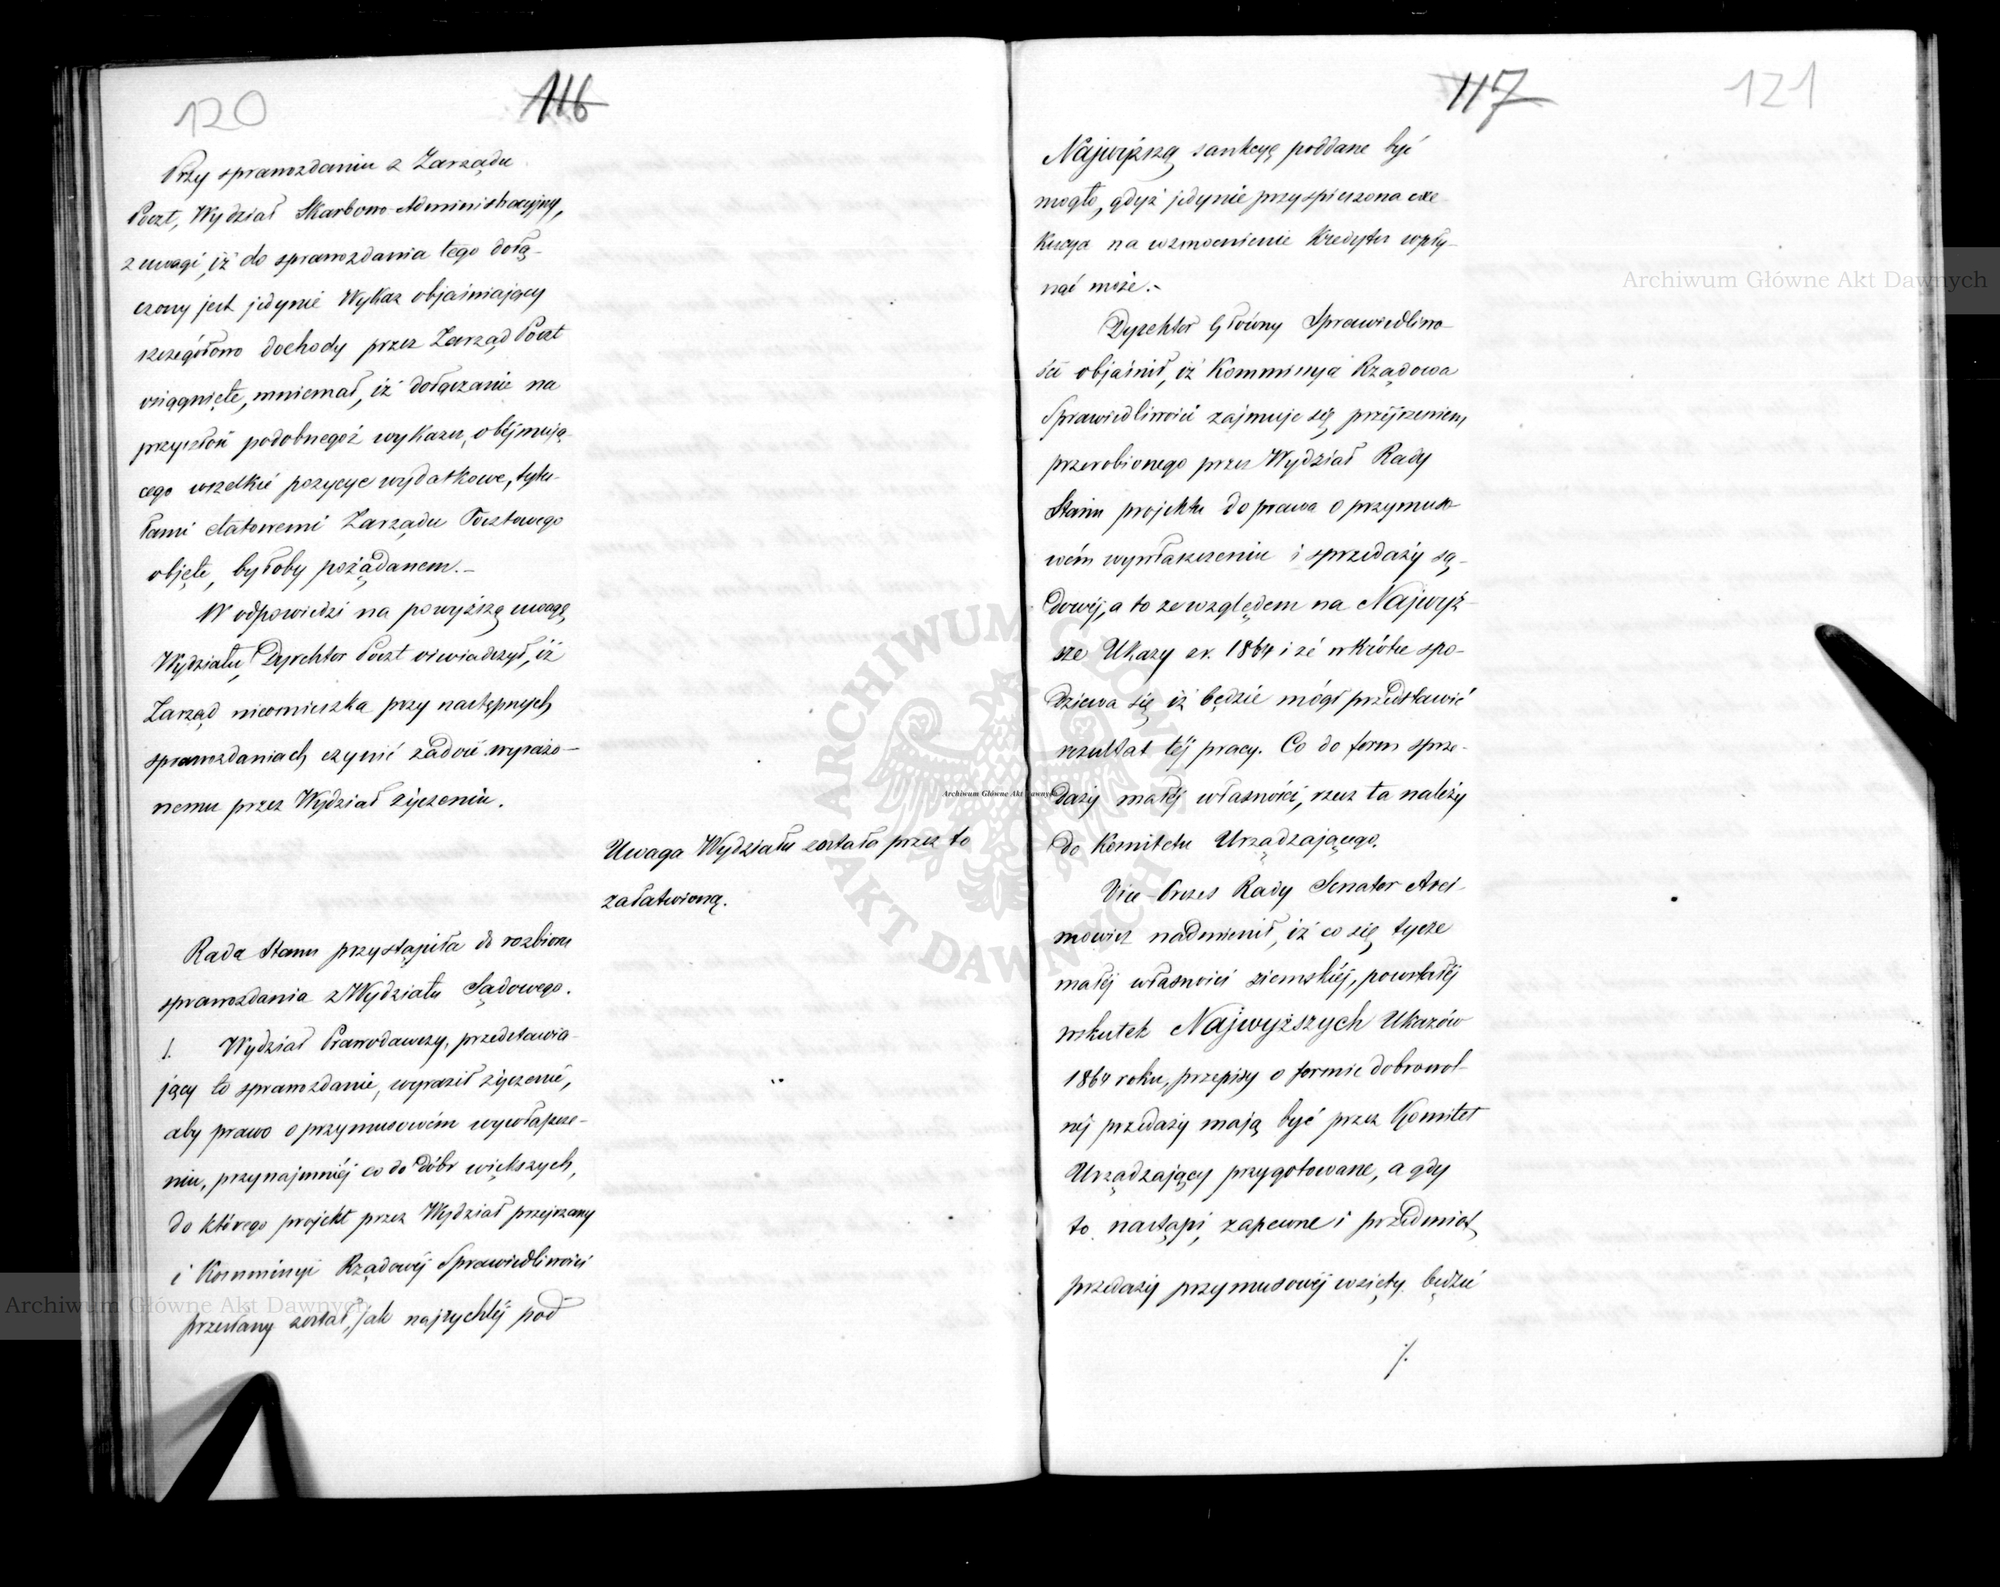 120
116
Przy sprawozdaniu z Zarządu
Poczt, Wydział Skarbowo-Administracyjny,
z uwagi, iż do sprawozdania tego dołą-
czony jest jedynie Wykaz objaśniający
szczegółowo dochody przez Zarząd Poczt
osiągnięte, mniemał, iż dołączanie na
przyszłość podobnegoż wykazu, obejmują-
cego wszelkie pozycye wydatkowe, tytu-
łami etatowemi Zarządu Pocztowego
objęte, byłoby pożądanem.-
W odpowiedzi na powyższą uwagę
Wydziału, Dyrektor Poczt oświadczył, iż
Zarząd nieomieszka przy następnych
sprawozdaniach czynić zadość wyrażo-
nemu przez Wydział życzeniu.
Uwaga Wydziału została przez to
załatwioną.
Rada Stanu przystąpiła do rozbioru
sprawozdania z Wydziału Sądowego.
1. Wydział Prawodawczy, przedstawia-
jący to sprawozdanie, wyraził życzenie,
aby prawo o przymusowém wywłaszcze-
niu, przynajmniéj co do dóbr większych,
do którego projekt przez Wydział przejrzany
i Kommissyi Rządowéj Sprawiedliwości
przesłany został, jak najrychléj pod
117
121
Najwyższą sankcyę poddane być
mogło, gdyż jedynie przyspieszona exe-
kucya na wzmocnienie Kredytu wpły-
nąć może.-
Dyrektor Główny Sprawiedliwo-
ści objaśnił, iż Kommissyja Rządowa
Sprawiedliwości zajmuje się przejrzeniem
przerobionego przez Wydział Rady
Stanu projektu do prawa o przymuso-
wém wywłaszczeniu i sprzedaży są-
dowéj, a to ze względem na Najwyż-
sze Ukazy z r. 1864 i że wkrótce spo-
dziewa się iż będzie mógł przedstawić
rezultat téj pracy. Co do form sprze-
daży małéj własności, rzecz ta należy
do Komitetu Urządzającego.
Vice-Prezes Rady Senator Arci-
mowicz nadmienił, iż co się tycze
małéj własności ziemskiéj, powstałéj
wskutek Najwyższych Ukazów
1864 roku, przepisy o formie dobrowol-
néj przedaży mają być przez Komitet
Urządzający przygotowane, a gdy
to nastąpi, zapewne i przedmiot
przedaży przymusowéj wzięty będzie
./.
Archiwum Główne Akt Dawnych
Archiwum Główne Akt Dawnych
Archiwum Główne Akt Dawnych
ARCHIWUM GŁÓWNE AKT DAWNYCH